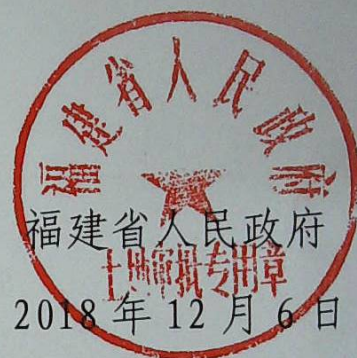 福建省人民政府
福建省人民政府
土地审批专用章
2018年12月6日